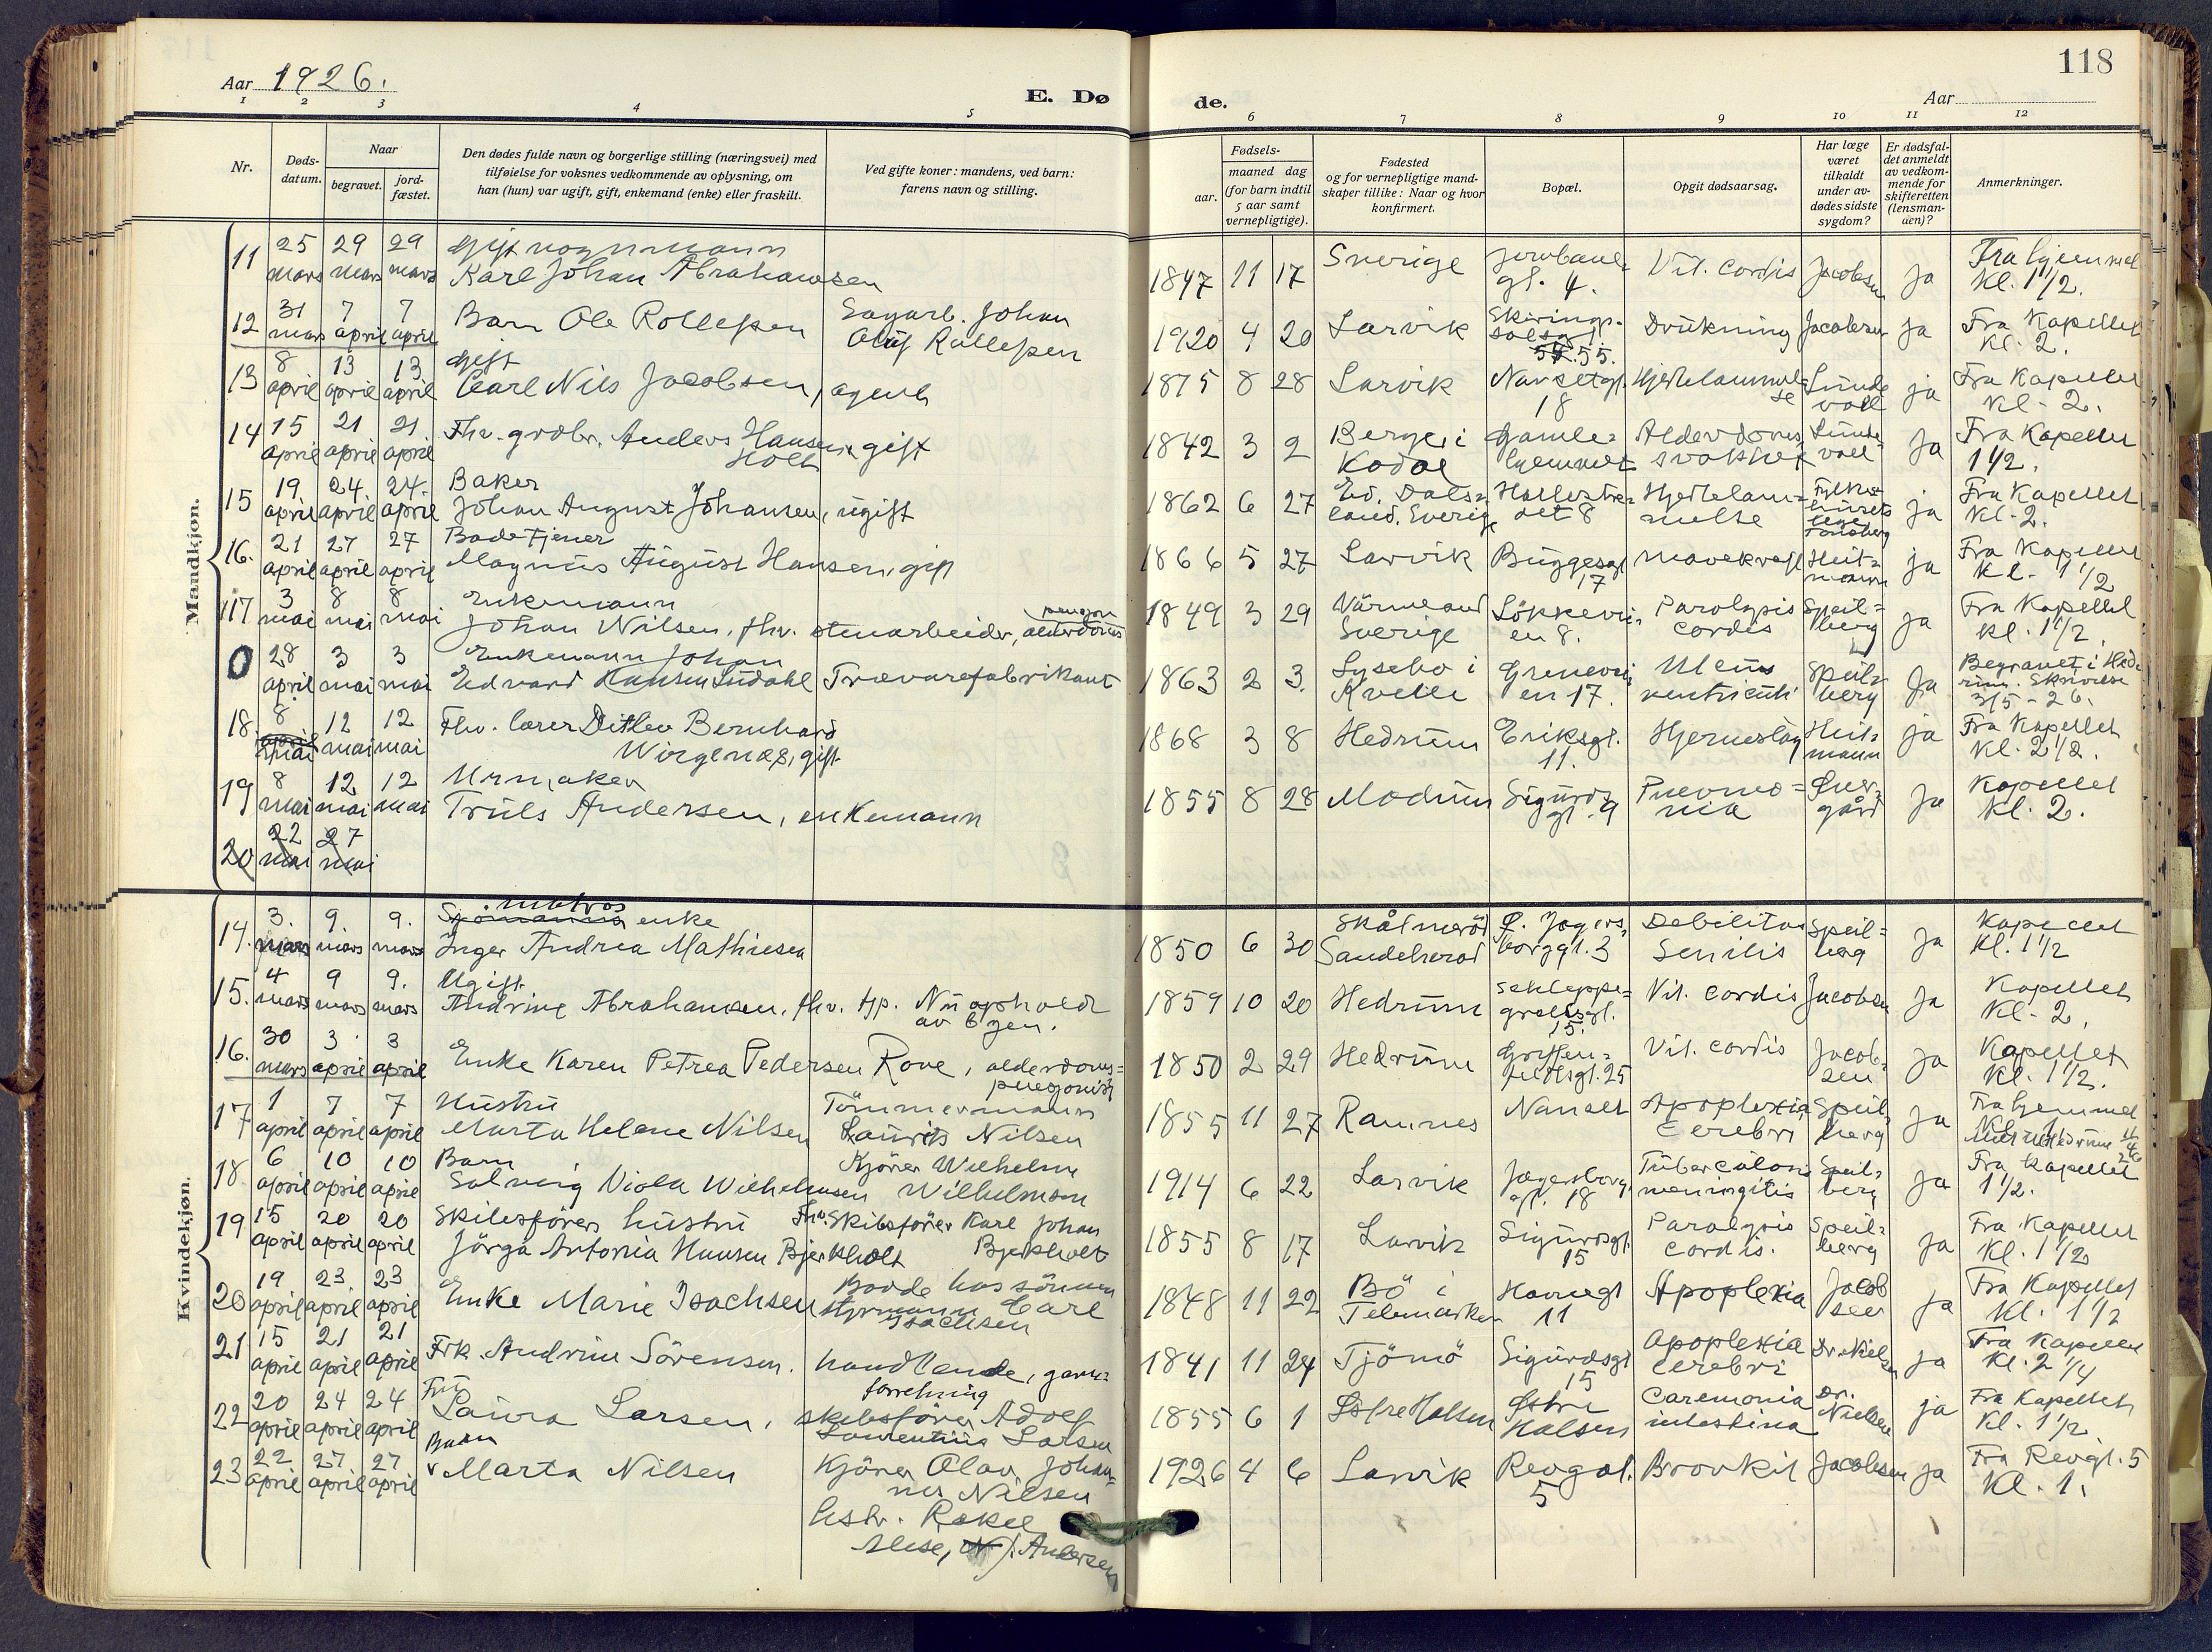 118
Aar 1926.
E. Dø
de.
Aar
1 2 3 4 5 6 7 8 9 10 11 12
Nr.
Døds-
datum.
Naar
begravet.
jord-
fæstet.
Den dødes fulde navn og borgerlige stilling (næringsvei) med
tilføielse for voksnes vedkommende av oplysning, om
han (hun) var ugift, gift, enkemand (enke) eller fraskilt.
Ved gifte koner: mandens, ved barn:
farens navn og stilling.
Fødsels-
aar.
maaned dag
(for barn indtil
5 aar samt
vernepligtige).
Fødested
og for vernepligtige mand-
skaper tillike: Naar og hvor
konfirmert.
Bopæl.
Opgit dødsaarsag.
Har læge
været
tilkaldt
under av-
dødes sidste
sygdom?
Er dødsfal-
det anmeldt
av vedkom-
mende for
skifteretten
(lensman-
den)?
Anmerkninger.
Mandkjøn.
11 25 mars 29 mars 29 mars gift vognmann
Karl Johan Abrahamsen
1847 11 17 Sverige gt. 4. Vit. cordis Jacobsen ja Fra hjemmet
Kl. 1 1/2.
12 31 mars 7 april 7 april Barn Ole Rollefsen Sagarb. Johan
Oluf Rollefsen
1920 4 20 Larvik Skirings-
salsgt.
55. Drukning Jacobsen ja Fra Kapellet
Kl. 2.
13 8 april 13 april 13 april gift
Carl Nils Jacobsen, agent
1875 8 28 Larvik Nansetgt.
18 Hjertelammel-
se Lunde
vall ja Fra Kapellet
Kl. 2.
14 15 april 21 april 21 april Fhv. grdbr. Anders Hansen gift
Holt
1842 3 2 Berge i
Kodal Gamle-
hjemmet Alderdoms
svakhet Lunde-
vall ja Fra Kapellet
1 1/2.
15 19. april 24. april 24. april Baker
Johan August Johansen, ugift
1862 6 27 Ed. Dals-
land. Sverige 8 Hjertelam-
melse Tønsberg ja Fra Kapellet
Kl. 2.
16. 21 april 27 april 27 april Badetjener
Magnus August Hansen, gift
1866 5 27 Larvik Buggesgt
17 mavekreft Heit-
mann ja Fra Kapellet
Kl. 1 1/2
17 3 mai 8 mai 8 mai Enkemann
Johan Nilsen, fhv. stenarbeider, alderdoms
1849 3 29 Värmland
Sverige Løkkevei-
en 8. Paralysis
cordis Speil-
berg ja Fra Kapellet
kl. 1 1/2.
0 28 april 3 mai 3 mai Enkemann Johan
Edvard Hansen Lüdahl Trævarefabrikant
1863 2 3. Lysebo i
Kvelle Grenevei
en 17. Ulcus
ventriculi Speil-
berg ja Begravet i Hed-
rum. Skrivelse
3/5 - 26.
18. 8 april mai 12 mai 12 mai Fhv. lærer Ditlev Bernhard
Wirgenæs, gift.
1868 3 8 Hedrum Eriksgt.
11. Hjerneslag Heit-
mann ja Fra Kapellet
Kl. 2 1/2.
19 8 mai 12 mai 12 mai Urmaker
Truls Andersen, enkemann
1855 8 28 Modum Sigurds
gt. 9 Pneumo-
nia gård ja Kapellet
Kl. 2.
20 22 mai 27 mai
Kvindekjøn.
14. 3. mars 9. mars 9. mars Sjømanns matros enke
Inger Andrea Mathiesen
1850 6 30 Sandeherad borggt. 3 Debilitas
senilis Speil-
berg ja Kapellet
Kl. 1 1/2
15. 4 mars 9 mars 9. mars Ugift.
Andrine Abrahamsen, fhv. tjp. Nu ophold
av byen.
1859 10 20 Hedrum Schleppe-
grellsgt.
15. Vit. cordis Jacobsen ja Kapellet
Kl. 2.
16. 30 mars 3 april 3 april Enke Karen Petrea Pedersen Rove, alderdoms-
pensjonist
1850 2 29 Hedrum Griffen-
feldtsgt. 25 Vit. cordis Jacob-
sen ja Kapellet
Kl. 1 1/2.
17 1 april 7 april 7 april Hustru
Marta Helene Nilsen Tømmermann
Laurits Nilsen
1855 11 27 Ramnes Nanset Apoplexia
cerebri Speil-
berg ja Fra hjemmet
18 6 april 10 april 10 april Barn
Solveig Viola Wilhelmsen Kjører Wilhelm
Wilhelmsen
1914 6 22 Larvik Jægersborg
gt. 18 Tuberculosis
meningitis Speil-
berg ja Fra Kapellet
1 1/2.
19 15 april 20 april 20 april Skibsførers hustru Fhv. Skibsfører Karl Johan
Jørga Antonia Hansen Bjerkholt Bjerkholt
1855 8 17 Larvik Sigurdsgt.
15 Paralysis
cordis. Speil-
berg ja Fra Kapellet
Kl. 1 1/2
20 19 april 23. april 23 april Enke Marie Isachsen Bodde hos sønnen
styrmann Carl
Isachsen
1848 11 22 Bø i
Telemarken Havnegt
11 Apoplexia Jacob
sen ja Fra Kapellet
Kl. 1 1/2
21 15 april 21 april 21 april Frk. Andrine Sørensen. handlende, garn-
forretning
1841 11 24 Tjømø Sigurdsgt
15 apoplexia
cerebri Dr. Nielsen ja Fra Kapellet
Kl. 2 1/4
22 20 april 24 april 24 april Fru
Laura Larsen, skibsfører Adolf
Laurentius Larsen
1855 6 1 Østre Halsen Østre
Halsen intestina Dr.
Nielsen ja Fra Kapellet
Kl. 1 1/2
23 22 april 27 april 27 april Barn
Marta Nilsen Kjører Olav Johan-
nes Nilsen
hstr. Rakel
Alise, f. Andersen
1926 4 6 Larvik Revegt.
5 Bronkit Jacobsen ja Fra Revgt. 5
Kl. 1.